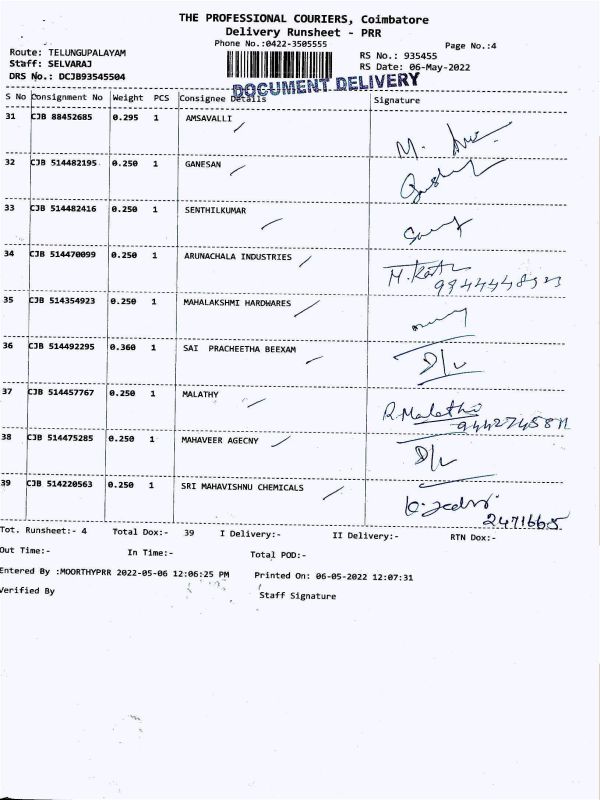 THE PROFESSIONAL COURIERS, Coimbatore
Delivery Runsheet - PRR
Phone No.:0422-3505555
Page No.:4
Route: TELUNGUPALAYAM
RS No.: 935455
Staff: SELVARAJ
RS Date: 06-May-2022
DRS No.: DCJB93545504
DOCUMENT DELIVERY
S No Consignment No Weight PCS Consignee Details Signature
31 CJB 88452685 0.295 1 AMSAVALLI
32 CJB 514482195 0.250 1 GANESAN
33 CJB 514482416 0.250 1 SENTHILKUMAR
34 CJB 514470099 0.250 1 ARUNACHALA INDUSTRIES
35 CJB 514354923 0.250 1 MAHALAKSHMI HARDWARES
36 CJB 514492295 0.360 1 SAI PRACHEETHA BEEXAM D/L
37 CJB 514457767 0.250 1 MALATHY R.Malathy
38 CJB 514475285 0.250 1 MAHAVEER AGECNY D/L
39 CJB 514220563 0.250 1 SRI MAHAVISHNU CHEMICALS
2471665
Tot. Runsheet:- 4 Total Dox:- 39 I Delivery:- II Delivery:- RTN Dox:-
Out Time:- In Time:- Total POD:-
Entered By :MOORTHYPRR 2022-05-06 12:06:25 PM Printed On: 06-05-2022 12:07:31
Verified By
Staff Signature